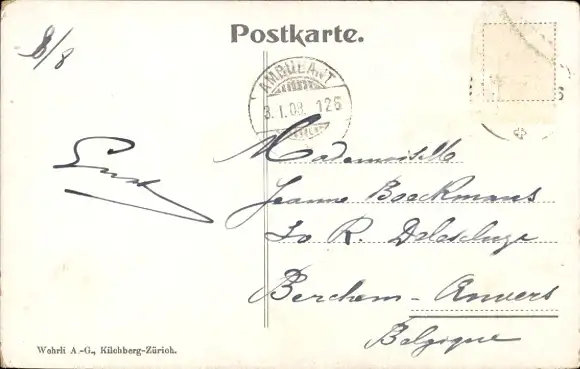 Postkarte.
8/8
AMBULANT
3.I.08. 126
Mademoiselle
Jeanne Boeckmans
R. Delescluze
Berchem - Anvers
Belgique
Wehrli A.-G., Kilchberg-Zürich.